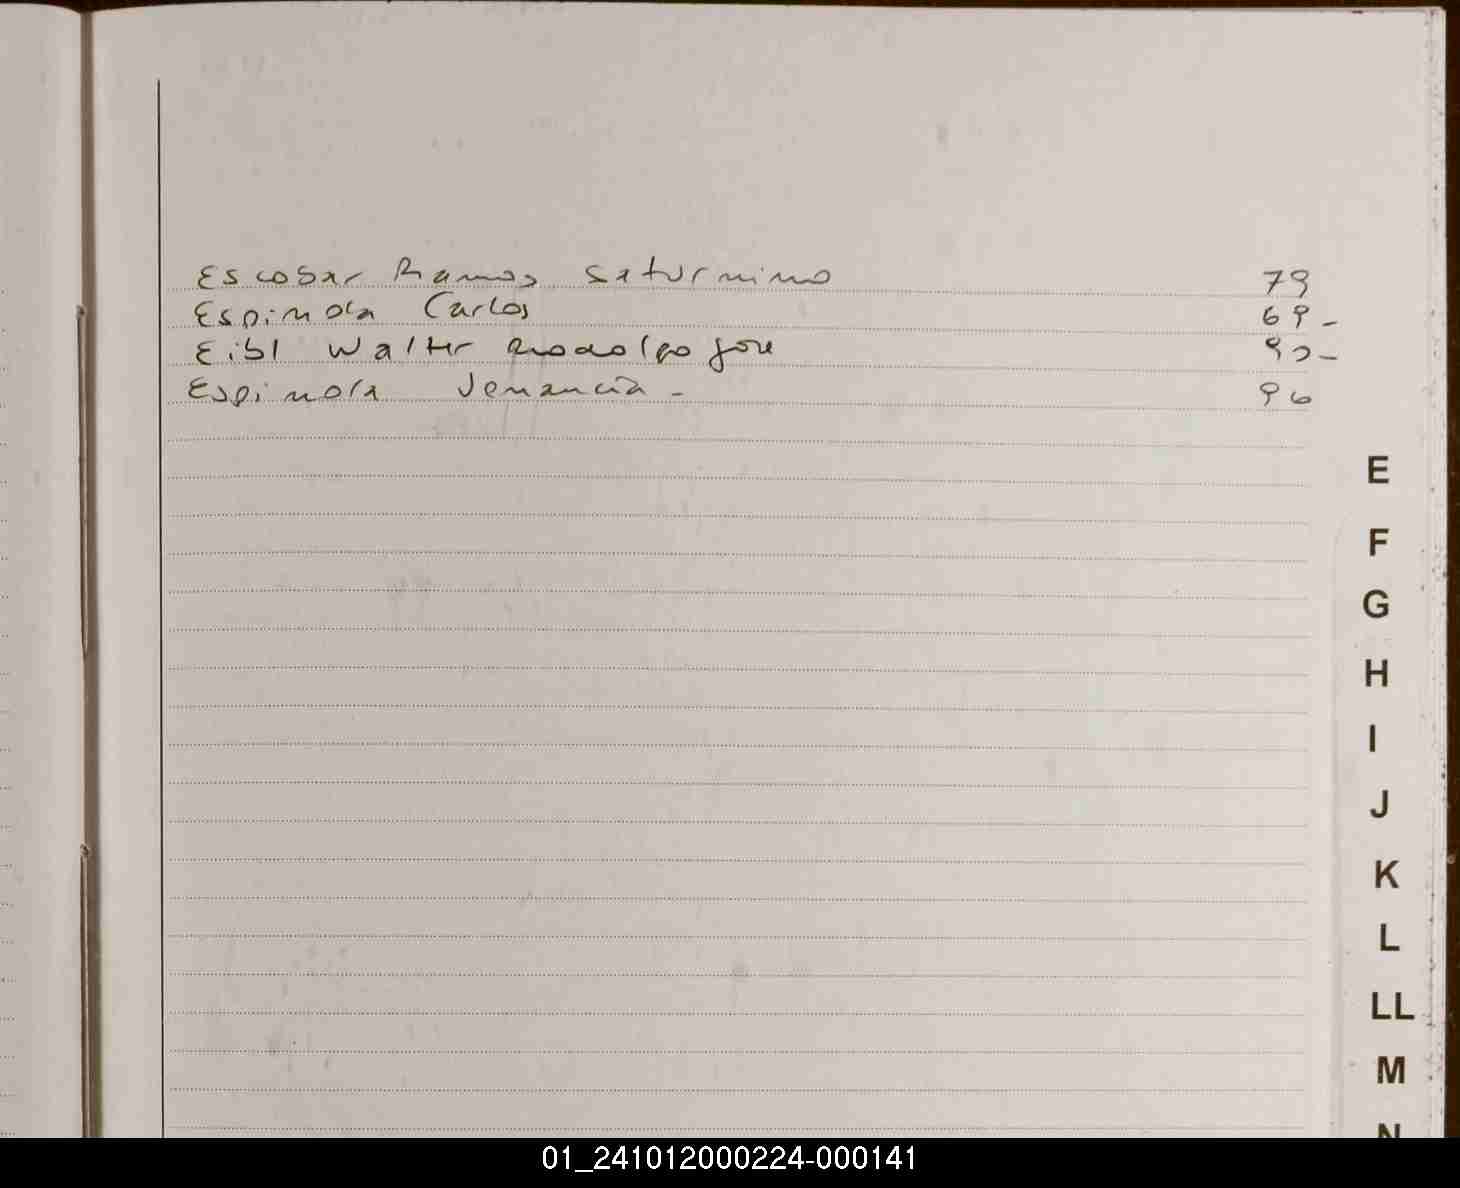 Escobar Ramos Saturnino 79
Espinola Carlos 69-
Eibl Walter Rodolfo José 90-
Espinola Venancia - 96
E
F
G
H
I
J
K
L
LL
M
N
01_241012000224-000141